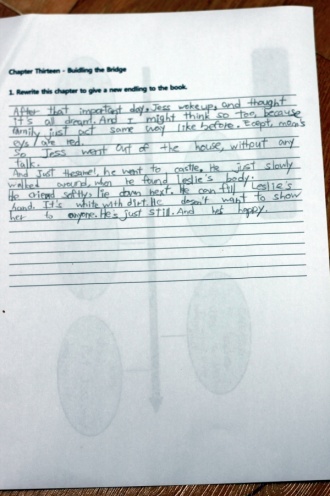 Chapter Thirteen - Buidling the Bridge
1. Rewrite this chapter to give a new endling to the book.
After that important day, Jess woke up, and thought
it's all dream. And I might think so too, because
family just act same way like before. Ecept, mom's
eys are red.
So Jess went out of the house, without any
talk.
And just thesame!, he went to castle. He just slowly
walked around, when he found Leslie's body.
He cried softly. lie down next. He can fill Leslie's
hand. It's white with dirt. He doesn't want to show
her to anyone. He's just still. And not happy.